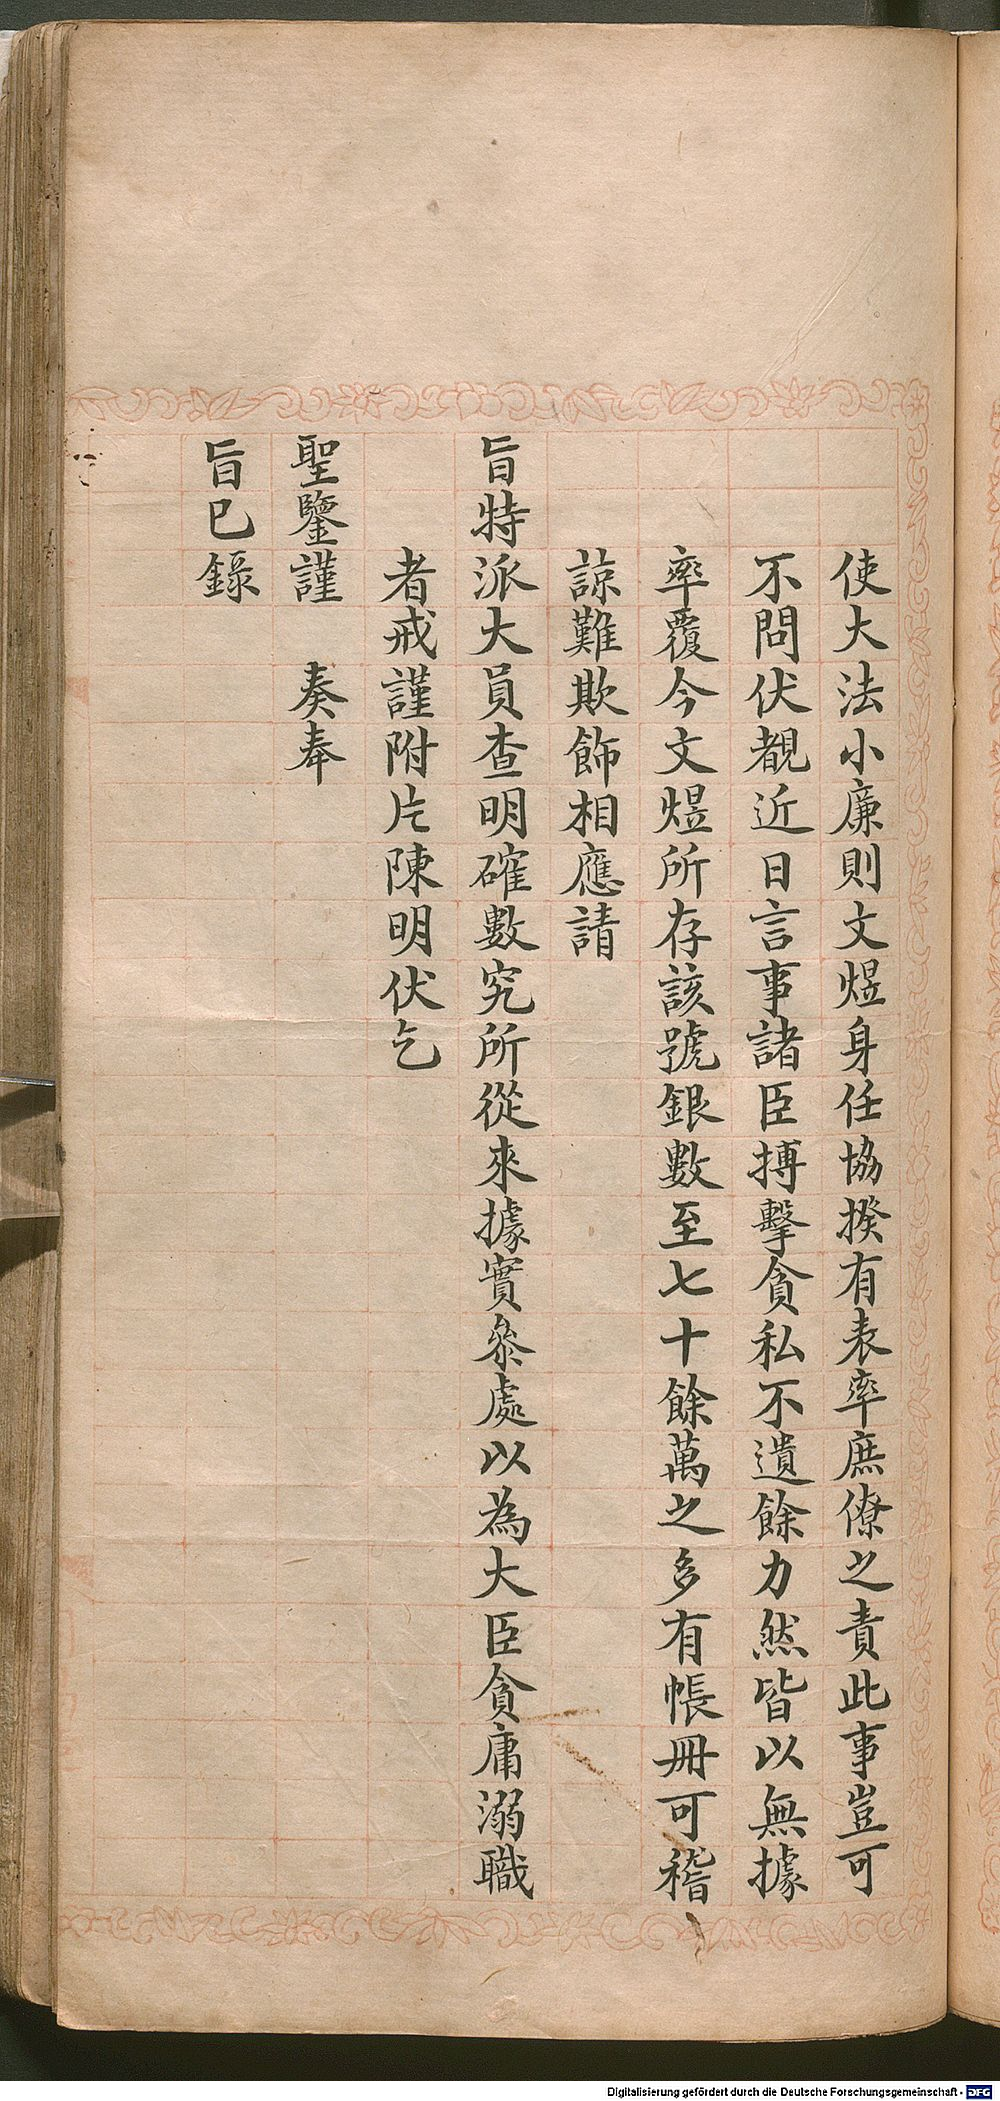 使大法小廉則文煜身任協揆有表率庶僚之責此事豈可
不問伏覩近日言事諸臣搏擊貪私不遺餘力然皆以無據
率覆今文煜所存該號銀數至七十餘萬之多有帳冊可稽
諒難欺飾相應請
旨特派大員查明確數究所從來據實叅處以為大臣貪庸溺職
者戒謹附片陳明伏乞
聖鑒謹 奏奉
旨已錄
Digitalisierung gefördert durch die Deutsche Forschungsgemeinschaft - DFG